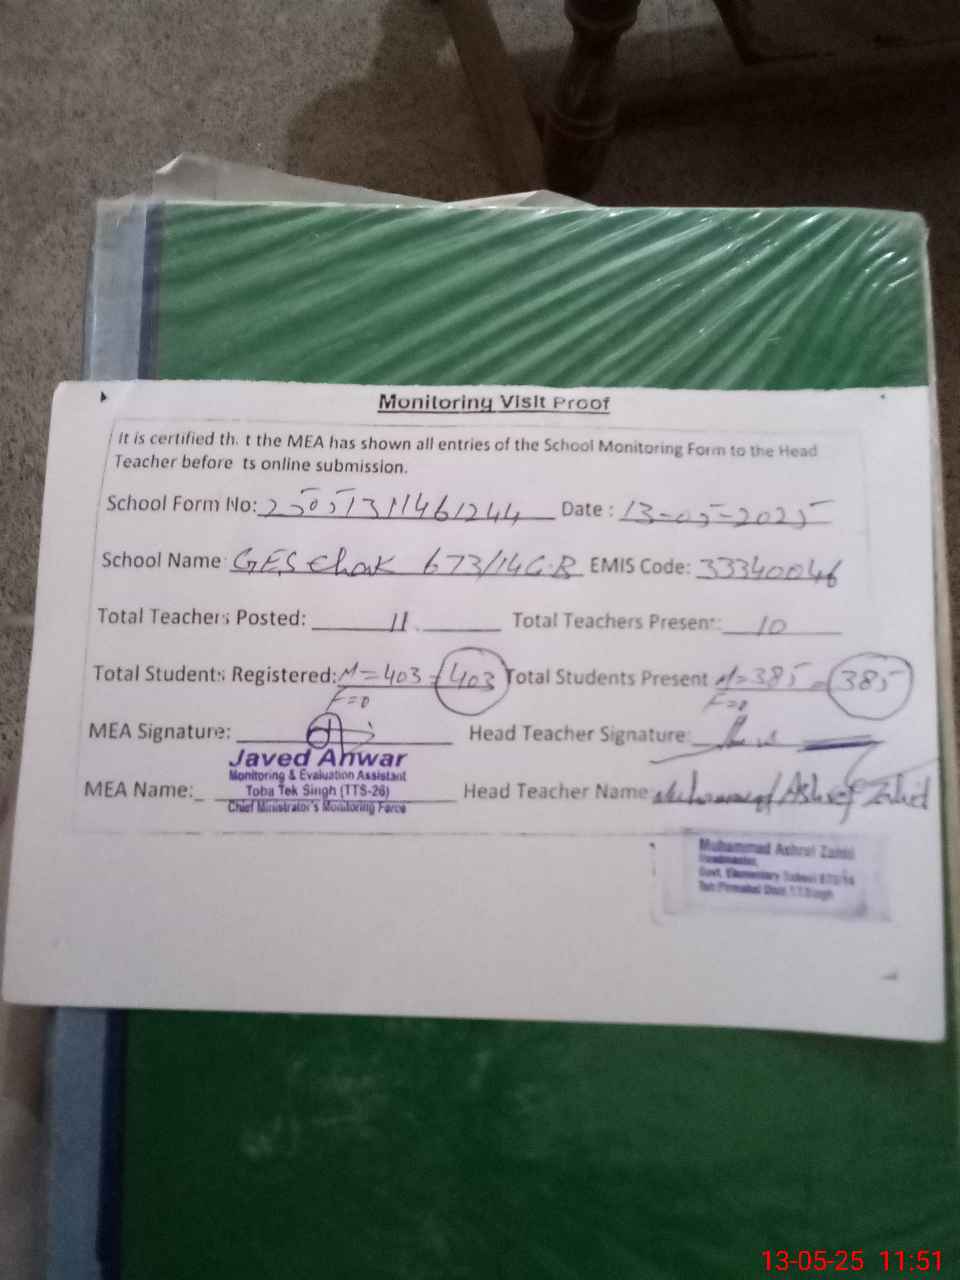 Monitoring Visit Proof
It is certified th t the MEA has shown all entries of the School Monitoring Form to the Head
Teacher before ts online submission.
School Form No: 25051311461244 Date : 13-05-2025
School Name: GES Chak 673/14 G.B EMIS Code: 33340046
Total Teachers Posted: 11 Total Teachers Present: 10
Total Students Registered: M=403 = 403 Total Students Present M=385 = 385
F=0 F=0
MEA Signature: Head Teacher Signature:
Javed Anwar
Monitoring & Evaluation Assistant
Toba Tek Singh (TTS-26)
Chief Ministrator's Monitoring Force
MEA Name: Head Teacher Name: Muhammad Ashraf Zahid
Muhammad Ashraf Zahid
Headmaster,
Govt. Elementary School 673/14
13-05-25 11:51